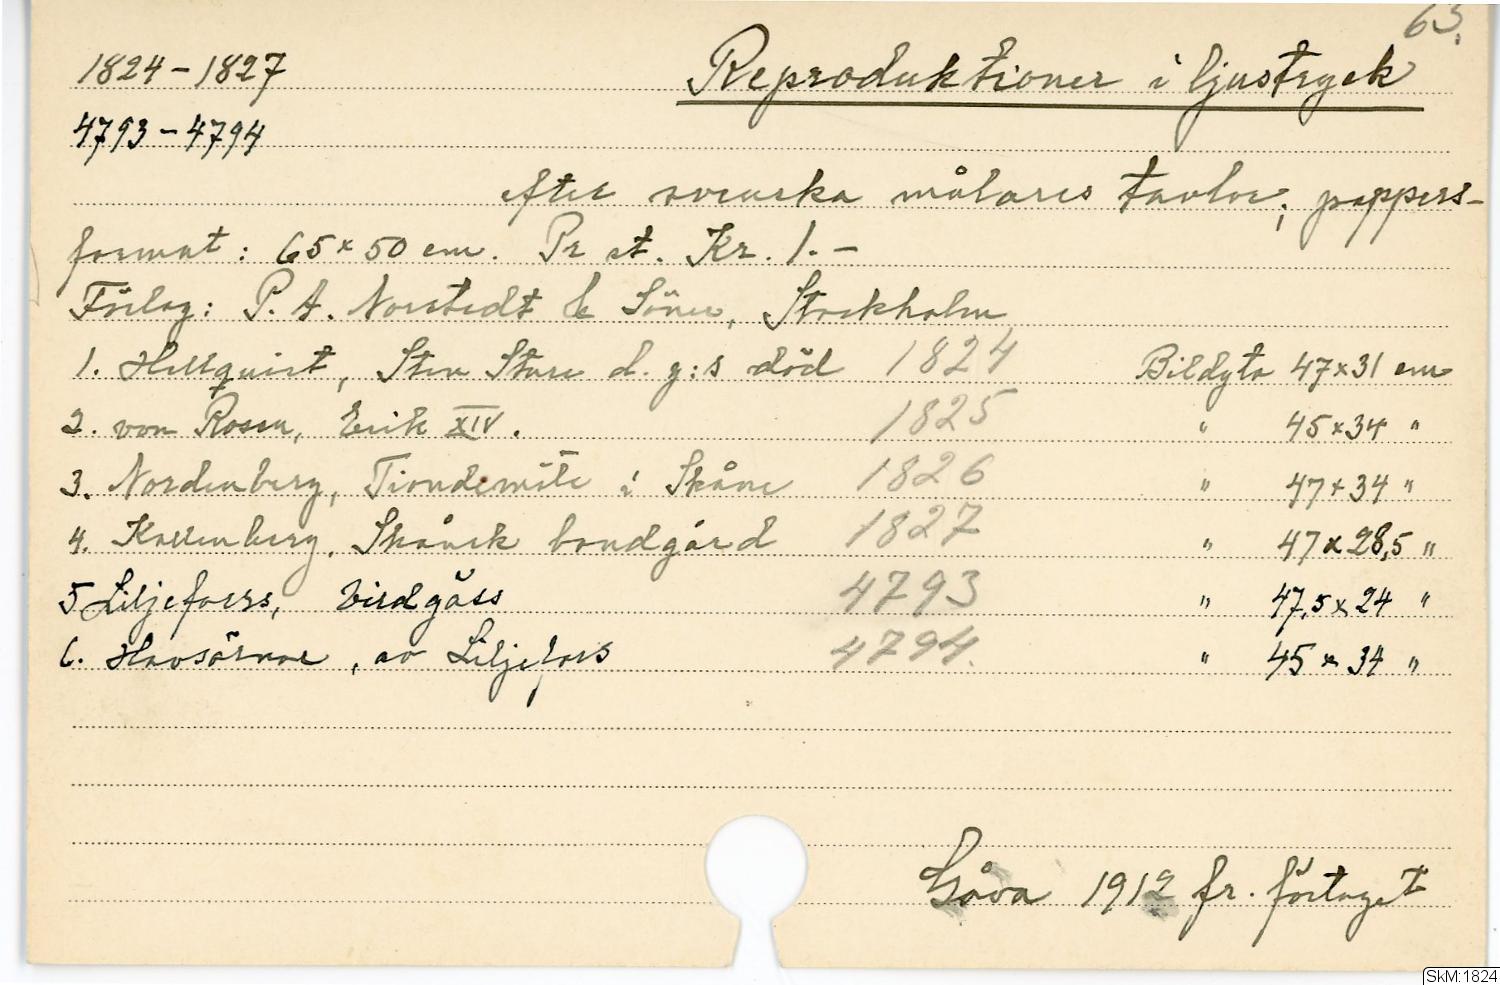 63.
1824-1827
Reproduktioner i ljustryck
4793-4794
efter svenska målares tavlor; pappers-
format: 65x50 cm. Pr st. Kr. 1.-
Förlag: P. A. Norstedt & Söner, Stockholm
1. Hellquist, Sten Sture d. y:s död 1824 Bildyta 47x31 cm
2. von Rosen, Erik XIV. 1825 " 45x34 "
3. Nordenberg, Tiondemöte i Skåne 1826 " 47x34 "
4. Kallenberg, Skånsk bondgård 1827 " 47x28,5 "
5 Liljefors, Vildgäss 4793 " 47,5x24 "
6. Havsörnar, av Liljefors 4794. " 45x34 "
Gåva 1912 fr. förlaget
SkM:1824